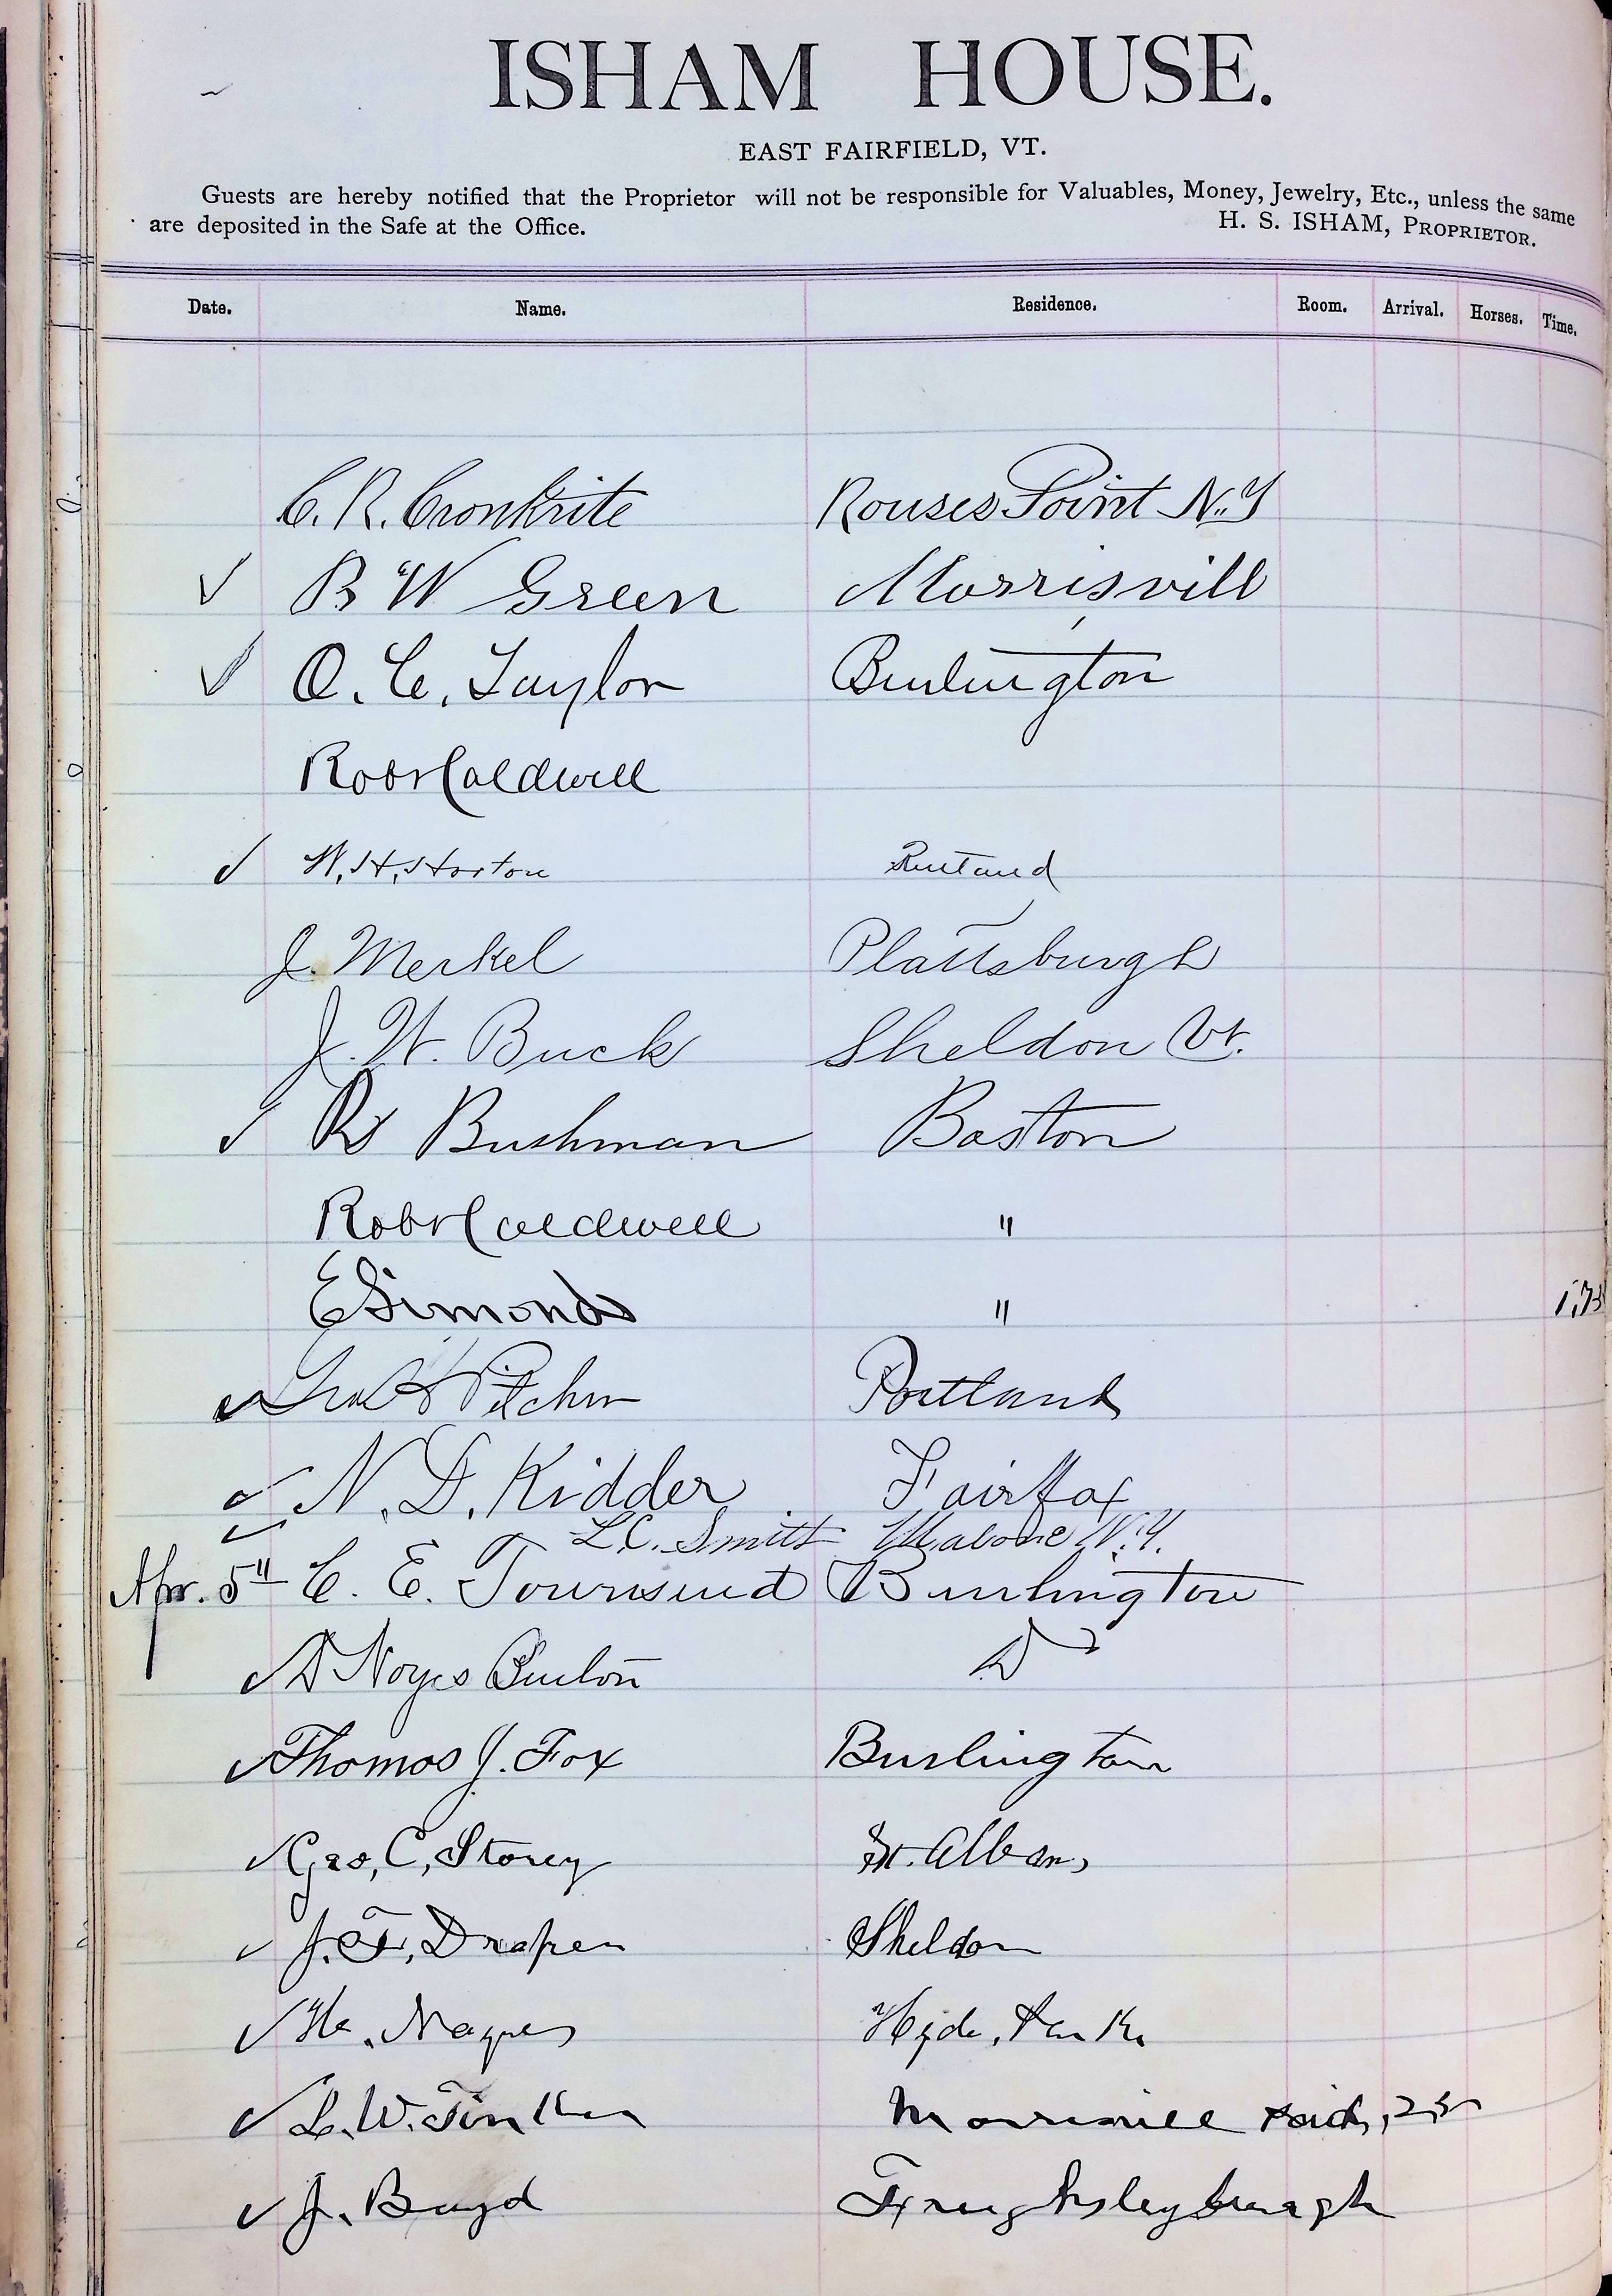 ISHAM HOUSE.
EAST FAIRFIELD, VT.
Guests are hereby notified that the Proprietor will not be responsible for Valuables, Money, Jewelry, Etc., unless the same
are deposited in the Safe at the Office. H. S. ISHAM, PROPRIETOR.
Date. Name. Residence. Room. Arrival. Horses. Time.
C. R. Cronkrite Rouses Point N.Y
B W Green Morrisvill
O. C. Taylor Burlington
Robt Caldwell
W. H. Horton Rutland
J. Merkel Plattsburgh
J. W. Buck Sheldon Vt.
Bushman Boston
Robt Caldwell "
E Simonds "
Pitcher Portland
N. D. Kidder Fairfax
L.C. Smith Malone N.Y.
Apr. 5" C. E. Townsend Burlington
Noyes Burlton Do
Thomas J. Fox Burlington
Geo. C. Storey St. Albans
J. F. Draper Sheldon
Noyes Hyde Park
L. W. Tinker Morrisville Paid
J. Boyd